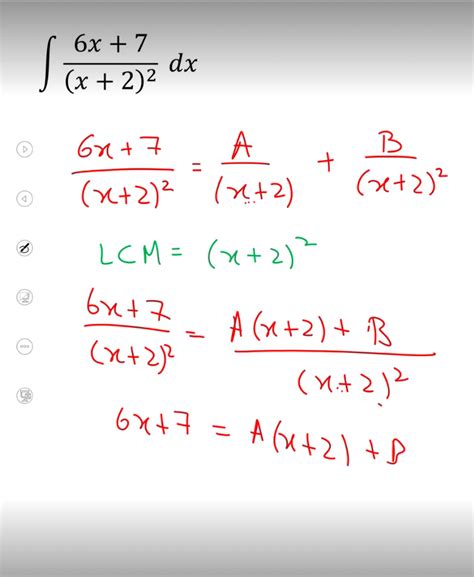 ∫ (6x + 7)/(x + 2)² dx
(6x+7)/(x+2)² = A/(x+2) + B/(x+2)²
LCM = (x+2)²
(6x+7)/(x+2)² = (A(x+2) + B)/(x+2)²
6x+7 = A(x+2) + B